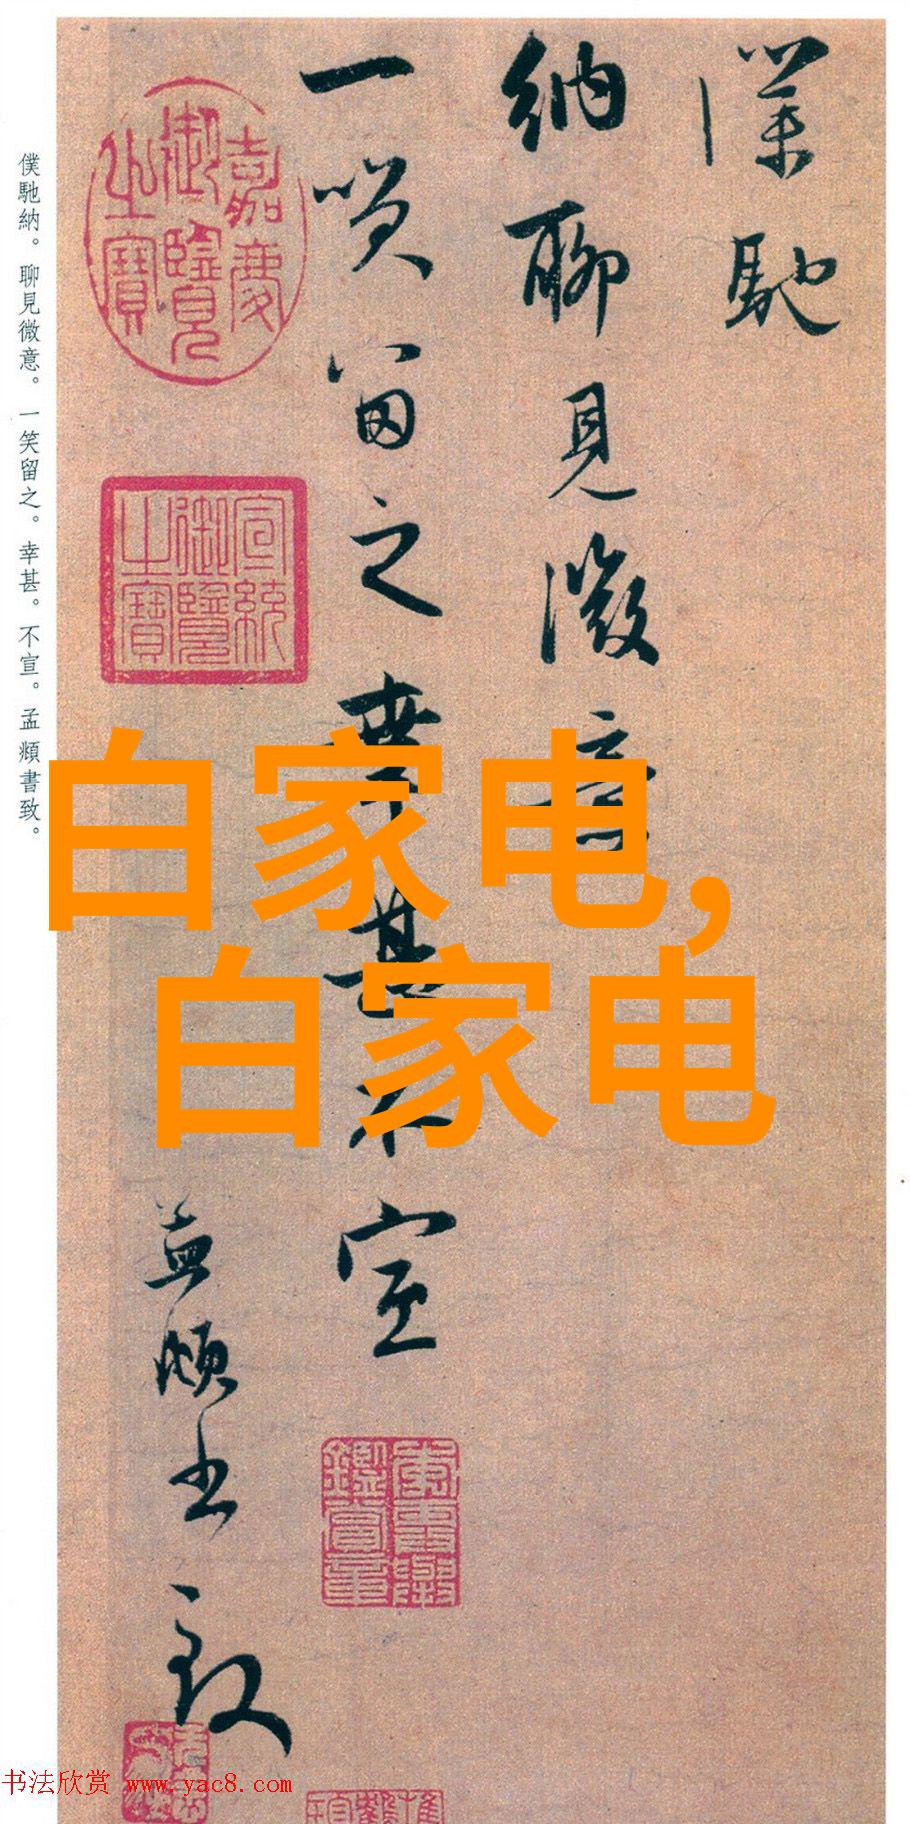 僕馳
納聊見微意
一笑留之幸甚不宣
孟頫書致
嘉慶御覽之寶
宣統御覽之寶
僕馳納。聊見微意。一笑留之。幸甚。不宣。孟頫書致。
白家电，
白家电
书法欣赏 www.yac8.com